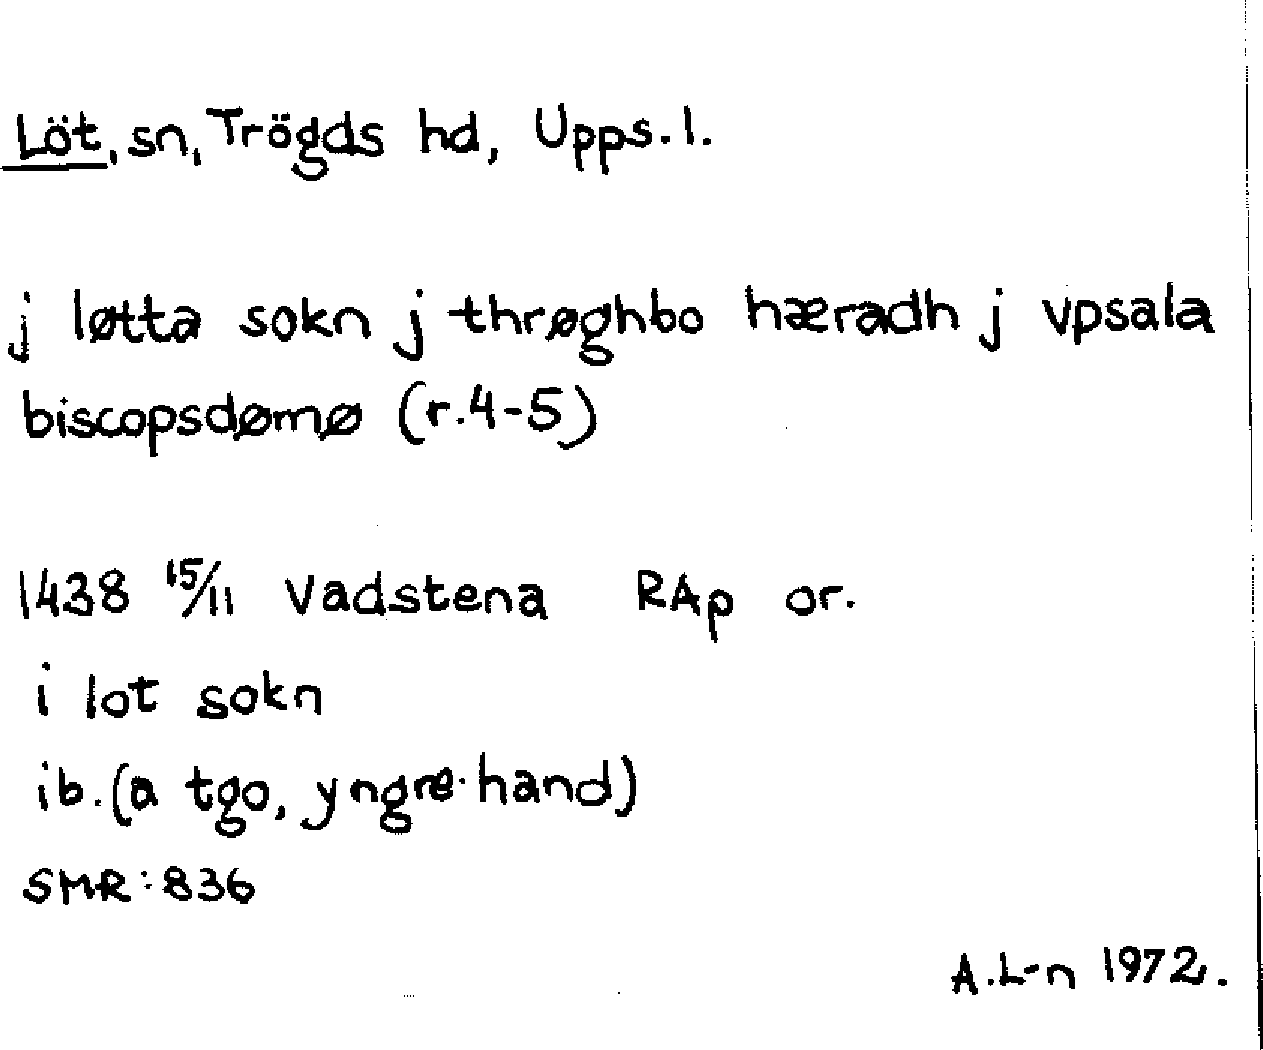 Löt, sn, Trögds hd, Upps. l.
j løtta sokn j thrøghbo hæradh j vpsala
biscopsdømø (r.4-5)
1438 15/11 Vadstena RAp or.
i lot sokn
ib. (a tgo, yngre hand)
SMR: 836
A.L-n 1972.